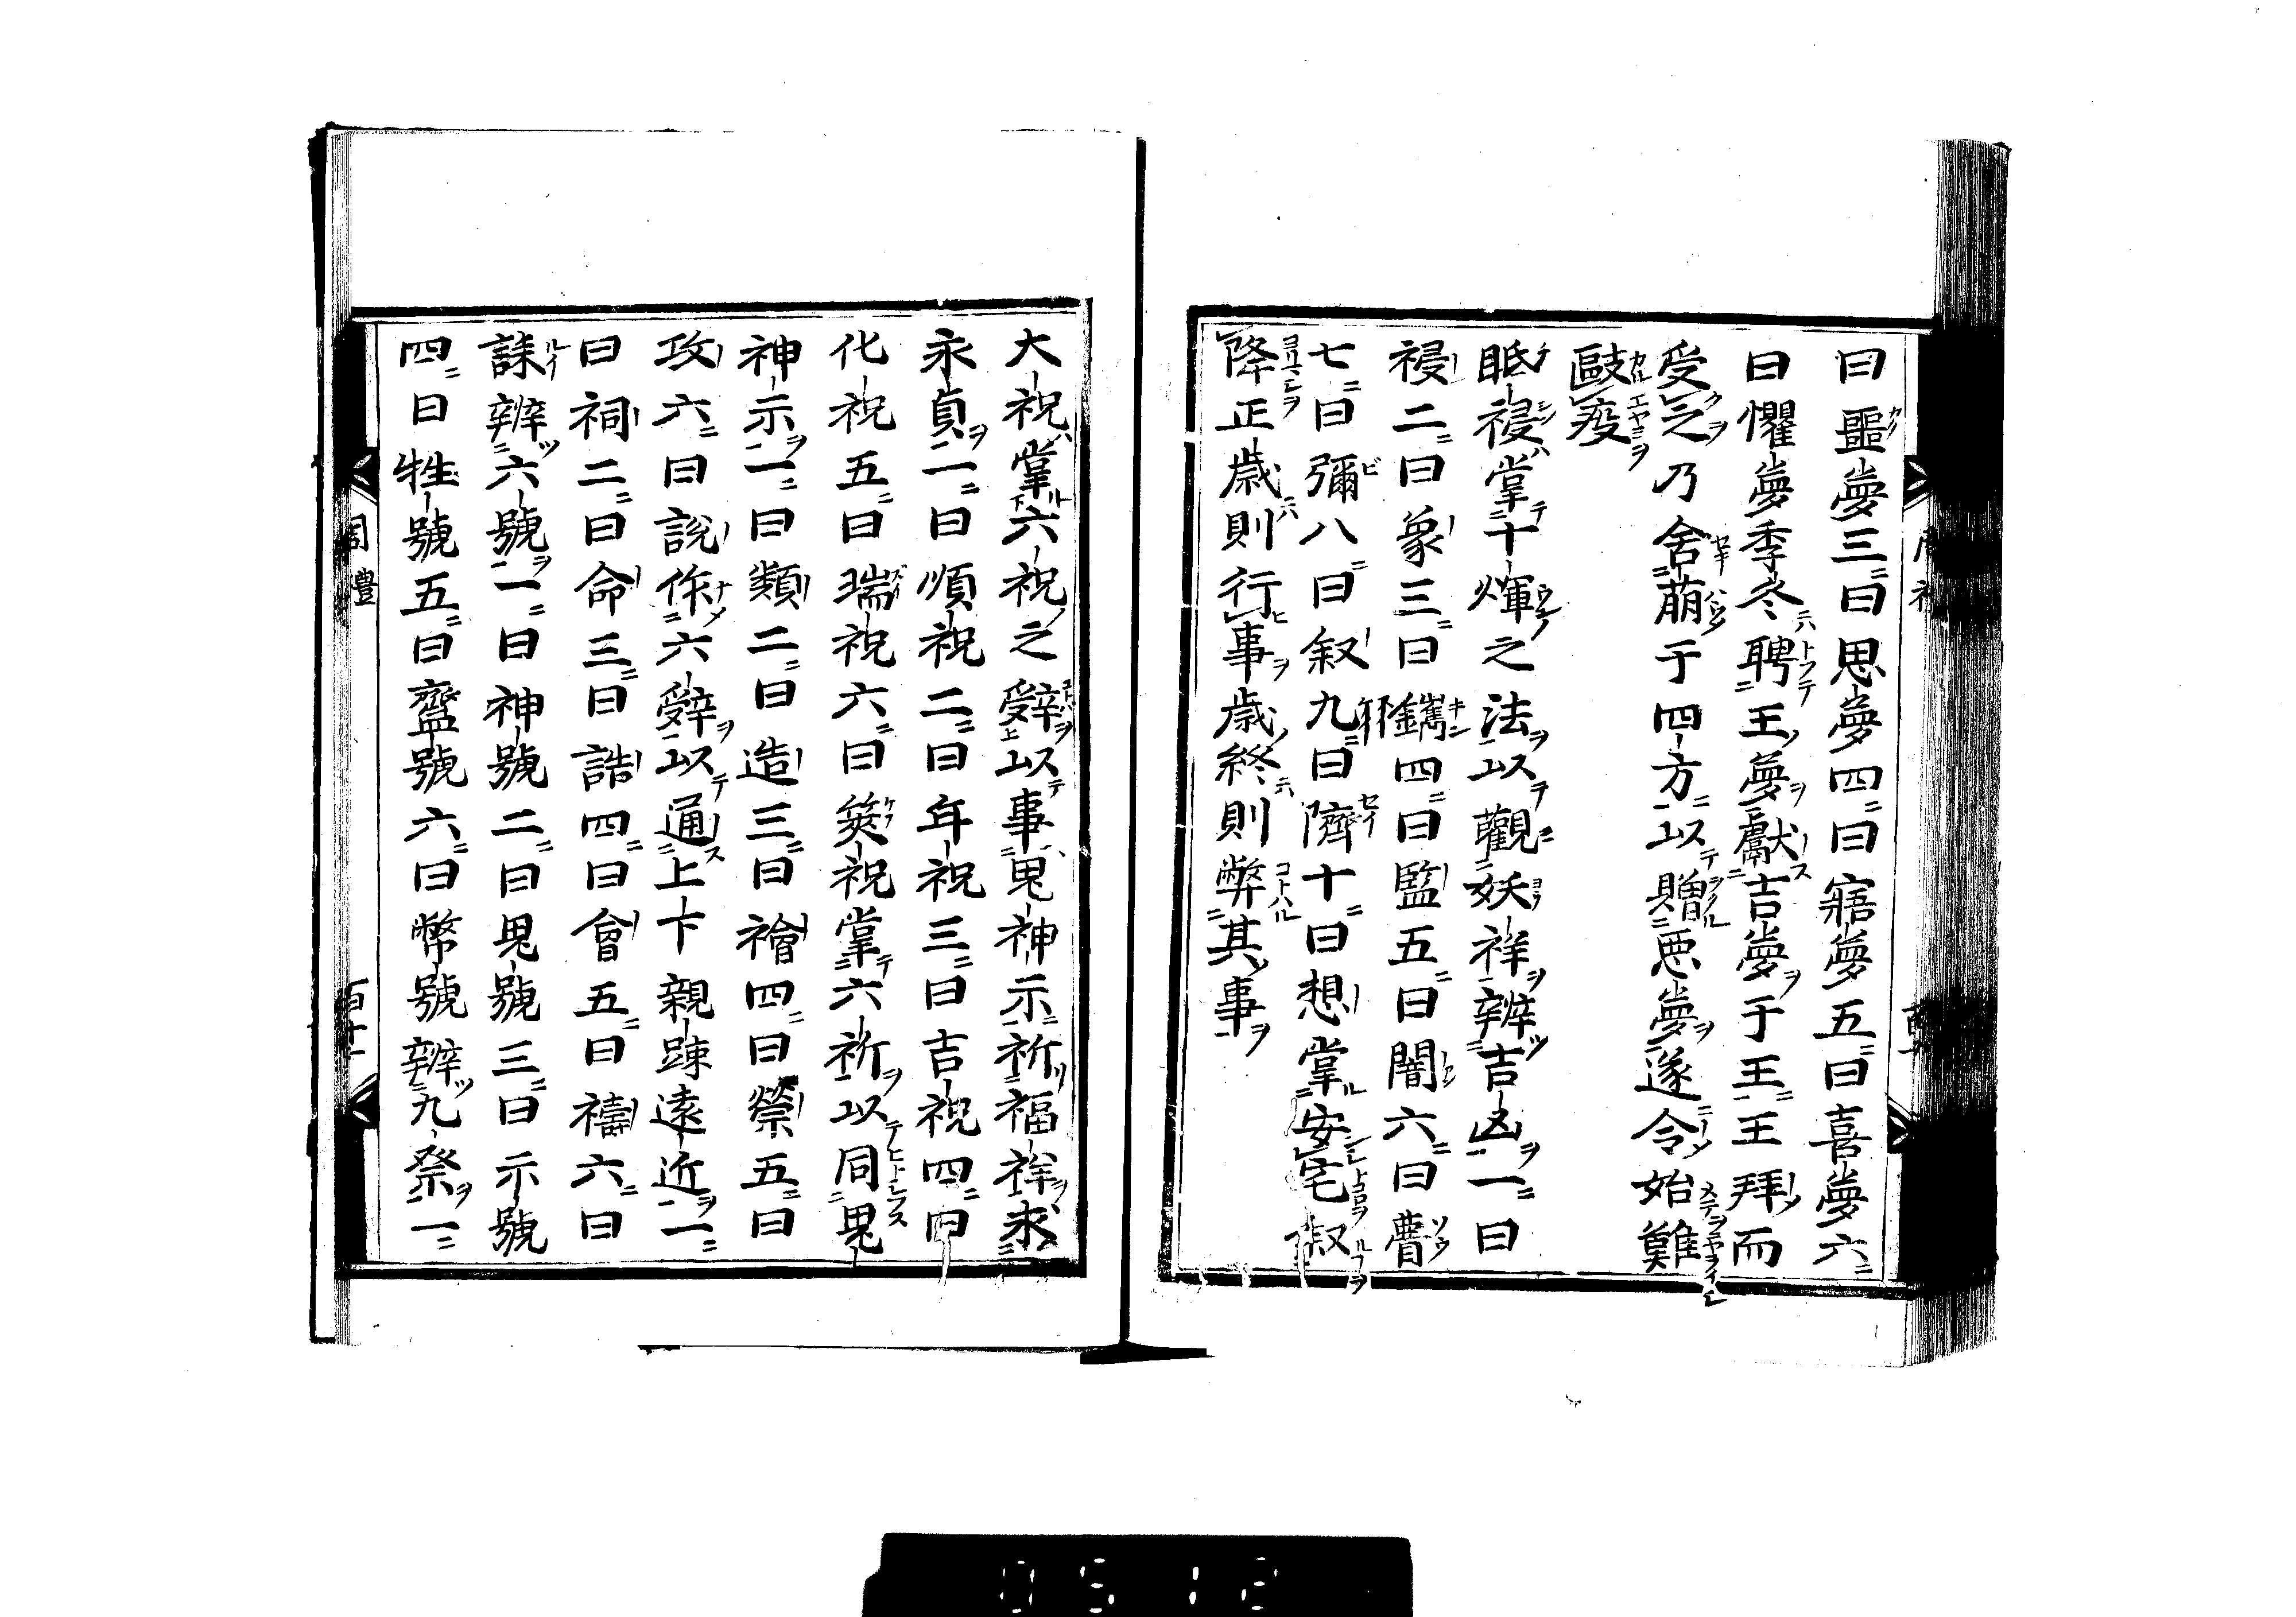 曰噩夢三曰思夢四曰寤夢五曰喜夢六
曰懼夢季冬聘王夢獻吉夢于王王拜而
受之乃舍萠于四方以贈悪夢遂令始難
敺疫
眂祲掌十煇之法以觀妖祥辨吉凶一曰
祲二曰象三曰鑴四曰監五曰闇六曰瞢
七曰彌八曰叙九曰隮十曰想掌安宅叙
降正歳則行事歳終則弊其事
大祝掌六祝之辭以事鬼神示祈福祥求
永貞一曰順祝二曰年祝三曰吉祝四曰
化祝五曰瑞祝六曰筴祝掌六祈以同鬼
神示一曰類二曰造三曰禬四曰禜五曰
攻六曰説作六辭以通上下親踈遠近一
曰祠二曰命三曰誥四曰會五曰禱六曰
誄辨六號一曰神號二曰鬼號三曰示號
四曰牲號五曰齍號六曰幣號辨九祭一
周禮
百十一
0512